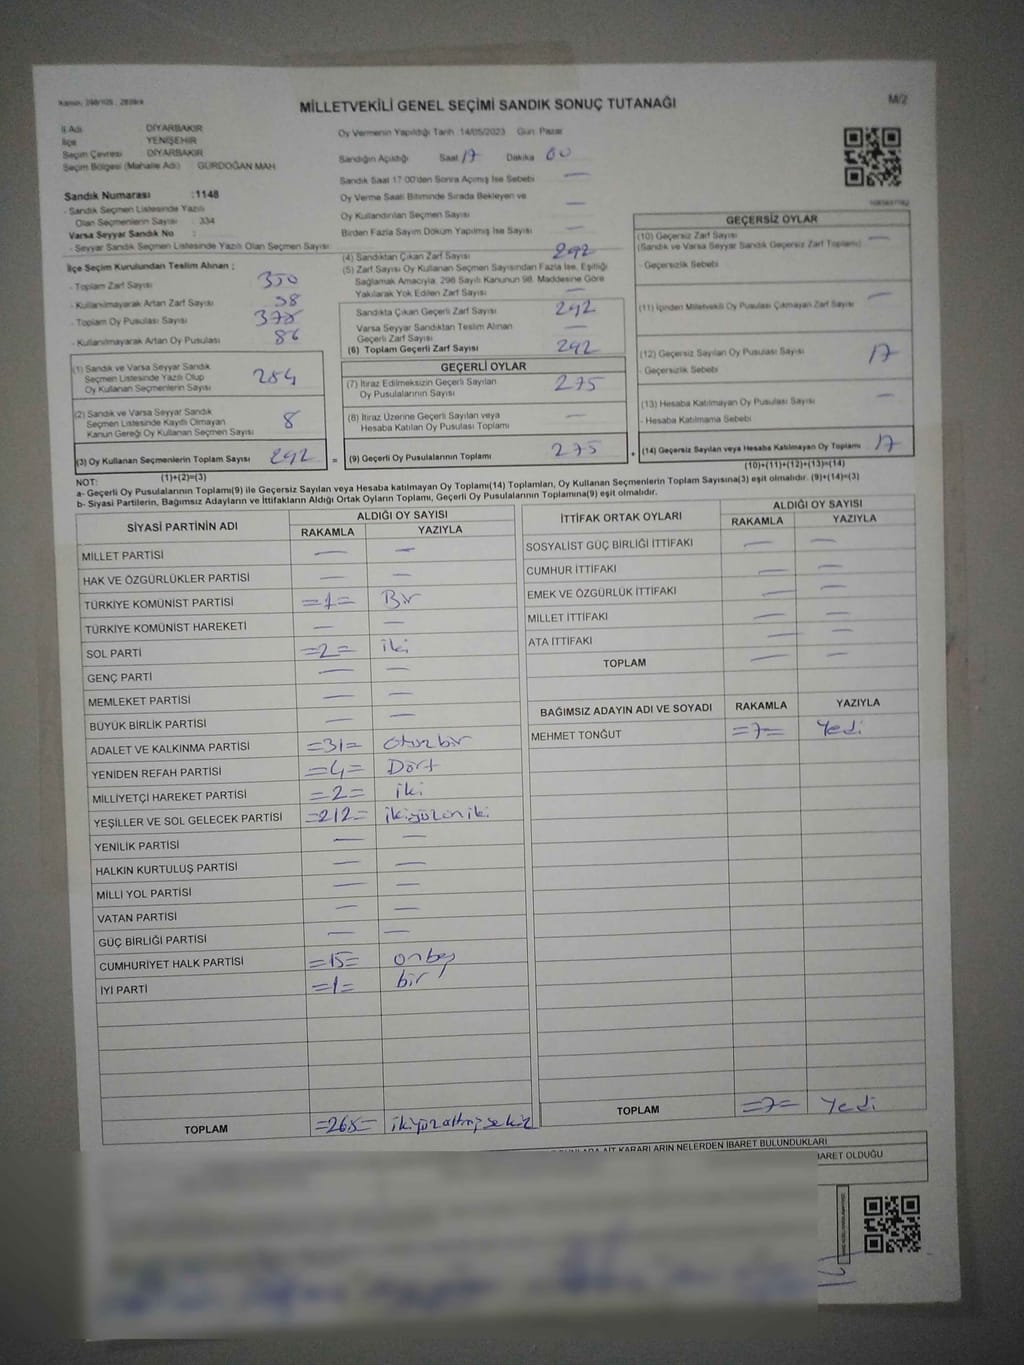 MİLLETVEKİLİ GENEL SEÇİMİ SANDIK SONUÇ TUTANAĞI
M/2
İl Adı DİYARBAKIR
İlçe YENİŞEHİR
Seçim Çevresi DİYARBAKIR
Seçim Bölgesi (Mahalle Adı) GÜRDOĞAN MAH
Oy Vermenin Yapıldığı Tarih :14/05/2023 Gün: Pazar
Sandığın Açıldığı Saat 17 Dakika 00
Sandık Saat 17:00'den Sonra Açılmış İse Sebebi —
Oy Verme Saati Bitiminde Sırada Bekleyen ve
Oy Kullandırılan Seçmen Sayısı —
Birden Fazla Sayım Döküm Yapılmış İse Sayısı —
Sandık Numarası :1148
- Sandık Seçmen Listesinde Yazılı
Olan Seçmenlerin Sayısı : 334
Varsa Seyyar Sandık No :
- Seyyar Sandık Seçmen Listesinde Yazılı Olan Seçmen Sayısı:
İlçe Seçim Kurulundan Teslim Alınan ;
- Toplam Zarf Sayısı 350
- Kullanılmayarak Artan Zarf Sayısı 58
- Toplam Oy Pusulası Sayısı 378
- Kullanılmayarak Artan Oy Pusulası 86
(1) Sandık ve Varsa Seyyar Sandık
Seçmen Listesinde Yazılı Olup
Oy Kullanan Seçmenlerin Sayısı 284
(2) Sandık ve Varsa Seyyar Sandık
Seçmen Listesinde Kayıtlı Olmayan
Kanun Gereği Oy Kullanan Seçmen Sayısı 8
(3) Oy Kullanan Seçmenlerin Toplam Sayısı 292 =
(1)+(2)=(3)
(4) Sandıktan Çıkan Zarf Sayısı 292
(5) Zarf Sayısı Oy Kullanan Seçmen Sayısından Fazla İse, Eşitliği
Sağlamak Amacıyla, 298 Sayılı Kanunun 98. Maddesine Göre
Yakılarak Yok Edilen Zarf Sayısı —
Sandıkta Çıkan Geçerli Zarf Sayısı 292
Varsa Seyyar Sandıktan Teslim Alınan
Geçerli Zarf Sayısı —
(6) Toplam Geçerli Zarf Sayısı 292
GEÇERLİ OYLAR
(7) İtiraz Edilmeksizin Geçerli Sayılan
Oy Pusulalarının Sayısı 275
(8) İtiraz Üzerine Geçerli Sayılan veya
Hesaba Katılan Oy Pusulası Toplamı —
(9) Geçerli Oy Pusulalarının Toplamı 275 +
GEÇERSİZ OYLAR
(10) Geçersiz Zarf Sayısı —
(Sandık ve Varsa Seyyar Sandık Geçersiz Zarf Toplamı)
- Geçersizlik Sebebi
(11) İçinden Milletvekili Oy Pusulası Çıkmayan Zarf Sayısı —
(12) Geçersiz Sayılan Oy Pusulası Sayısı 17
- Geçersizlik Sebebi
(13) Hesaba Katılmayan Oy Pusulası Sayısı —
- Hesaba Katılmama Sebebi
(14) Geçersiz Sayılan veya Hesaba Katılmayan Oy Toplamı 17
(10)+(11)+(12)+(13)=(14)
NOT:
a- Geçerli Oy Pusulalarının Toplamı(9) ile Geçersiz Sayılan veya Hesaba katılmayan Oy Toplamı(14) Toplamları, Oy Kullanan Seçmenlerin Toplam Sayısına(3) eşit olmalıdır. (9)+(14)=(3)
b- Siyasi Partilerin, Bağımsız Adayların ve İttifakların Aldığı Ortak Oyların Toplamı, Geçerli Oy Pusulalarının Toplamına(9) eşit olmalıdır.
SİYASİ PARTİNİN ADI ALDIĞI OY SAYISI
RAKAMLA YAZIYLA
MİLLET PARTİSİ — —
HAK VE ÖZGÜRLÜKLER PARTİSİ — —
TÜRKİYE KOMÜNİST PARTİSİ =1= Bir
TÜRKİYE KOMÜNİST HAREKETİ — —
SOL PARTİ =2= iki
GENÇ PARTİ — —
MEMLEKET PARTİSİ — —
BÜYÜK BİRLİK PARTİSİ — —
ADALET VE KALKINMA PARTİSİ =31= otuzbir
YENİDEN REFAH PARTİSİ =4= Dört
MİLLİYETÇİ HAREKET PARTİSİ =2= iki
YEŞİLLER VE SOL GELECEK PARTİSİ =212= ikiyüzoniki
YENİLİK PARTİSİ — —
HALKIN KURTULUŞ PARTİSİ — —
MİLLİ YOL PARTİSİ — —
VATAN PARTİSİ — —
GÜÇ BİRLİĞİ PARTİSİ — —
CUMHURİYET HALK PARTİSİ =15= onbeş
İYİ PARTİ =1= bir
TOPLAM =268= ikiyüzaltmışsekiz
İTTİFAK ORTAK OYLARI ALDIĞI OY SAYISI
RAKAMLA YAZIYLA
SOSYALİST GÜÇ BİRLİĞİ İTTİFAKI — —
CUMHUR İTTİFAKI — —
EMEK VE ÖZGÜRLÜK İTTİFAKI — —
MİLLET İTTİFAKI — —
ATA İTTİFAKI — —
TOPLAM — —
BAĞIMSIZ ADAYIN ADI VE SOYADI RAKAMLA YAZIYLA
MEHMET TONĞUT =7= Yedi
TOPLAM =7= Yedi
AİT KARARLARIN NELERDEN İBARET BULUNDUKLARI
İBARET OLDUĞU